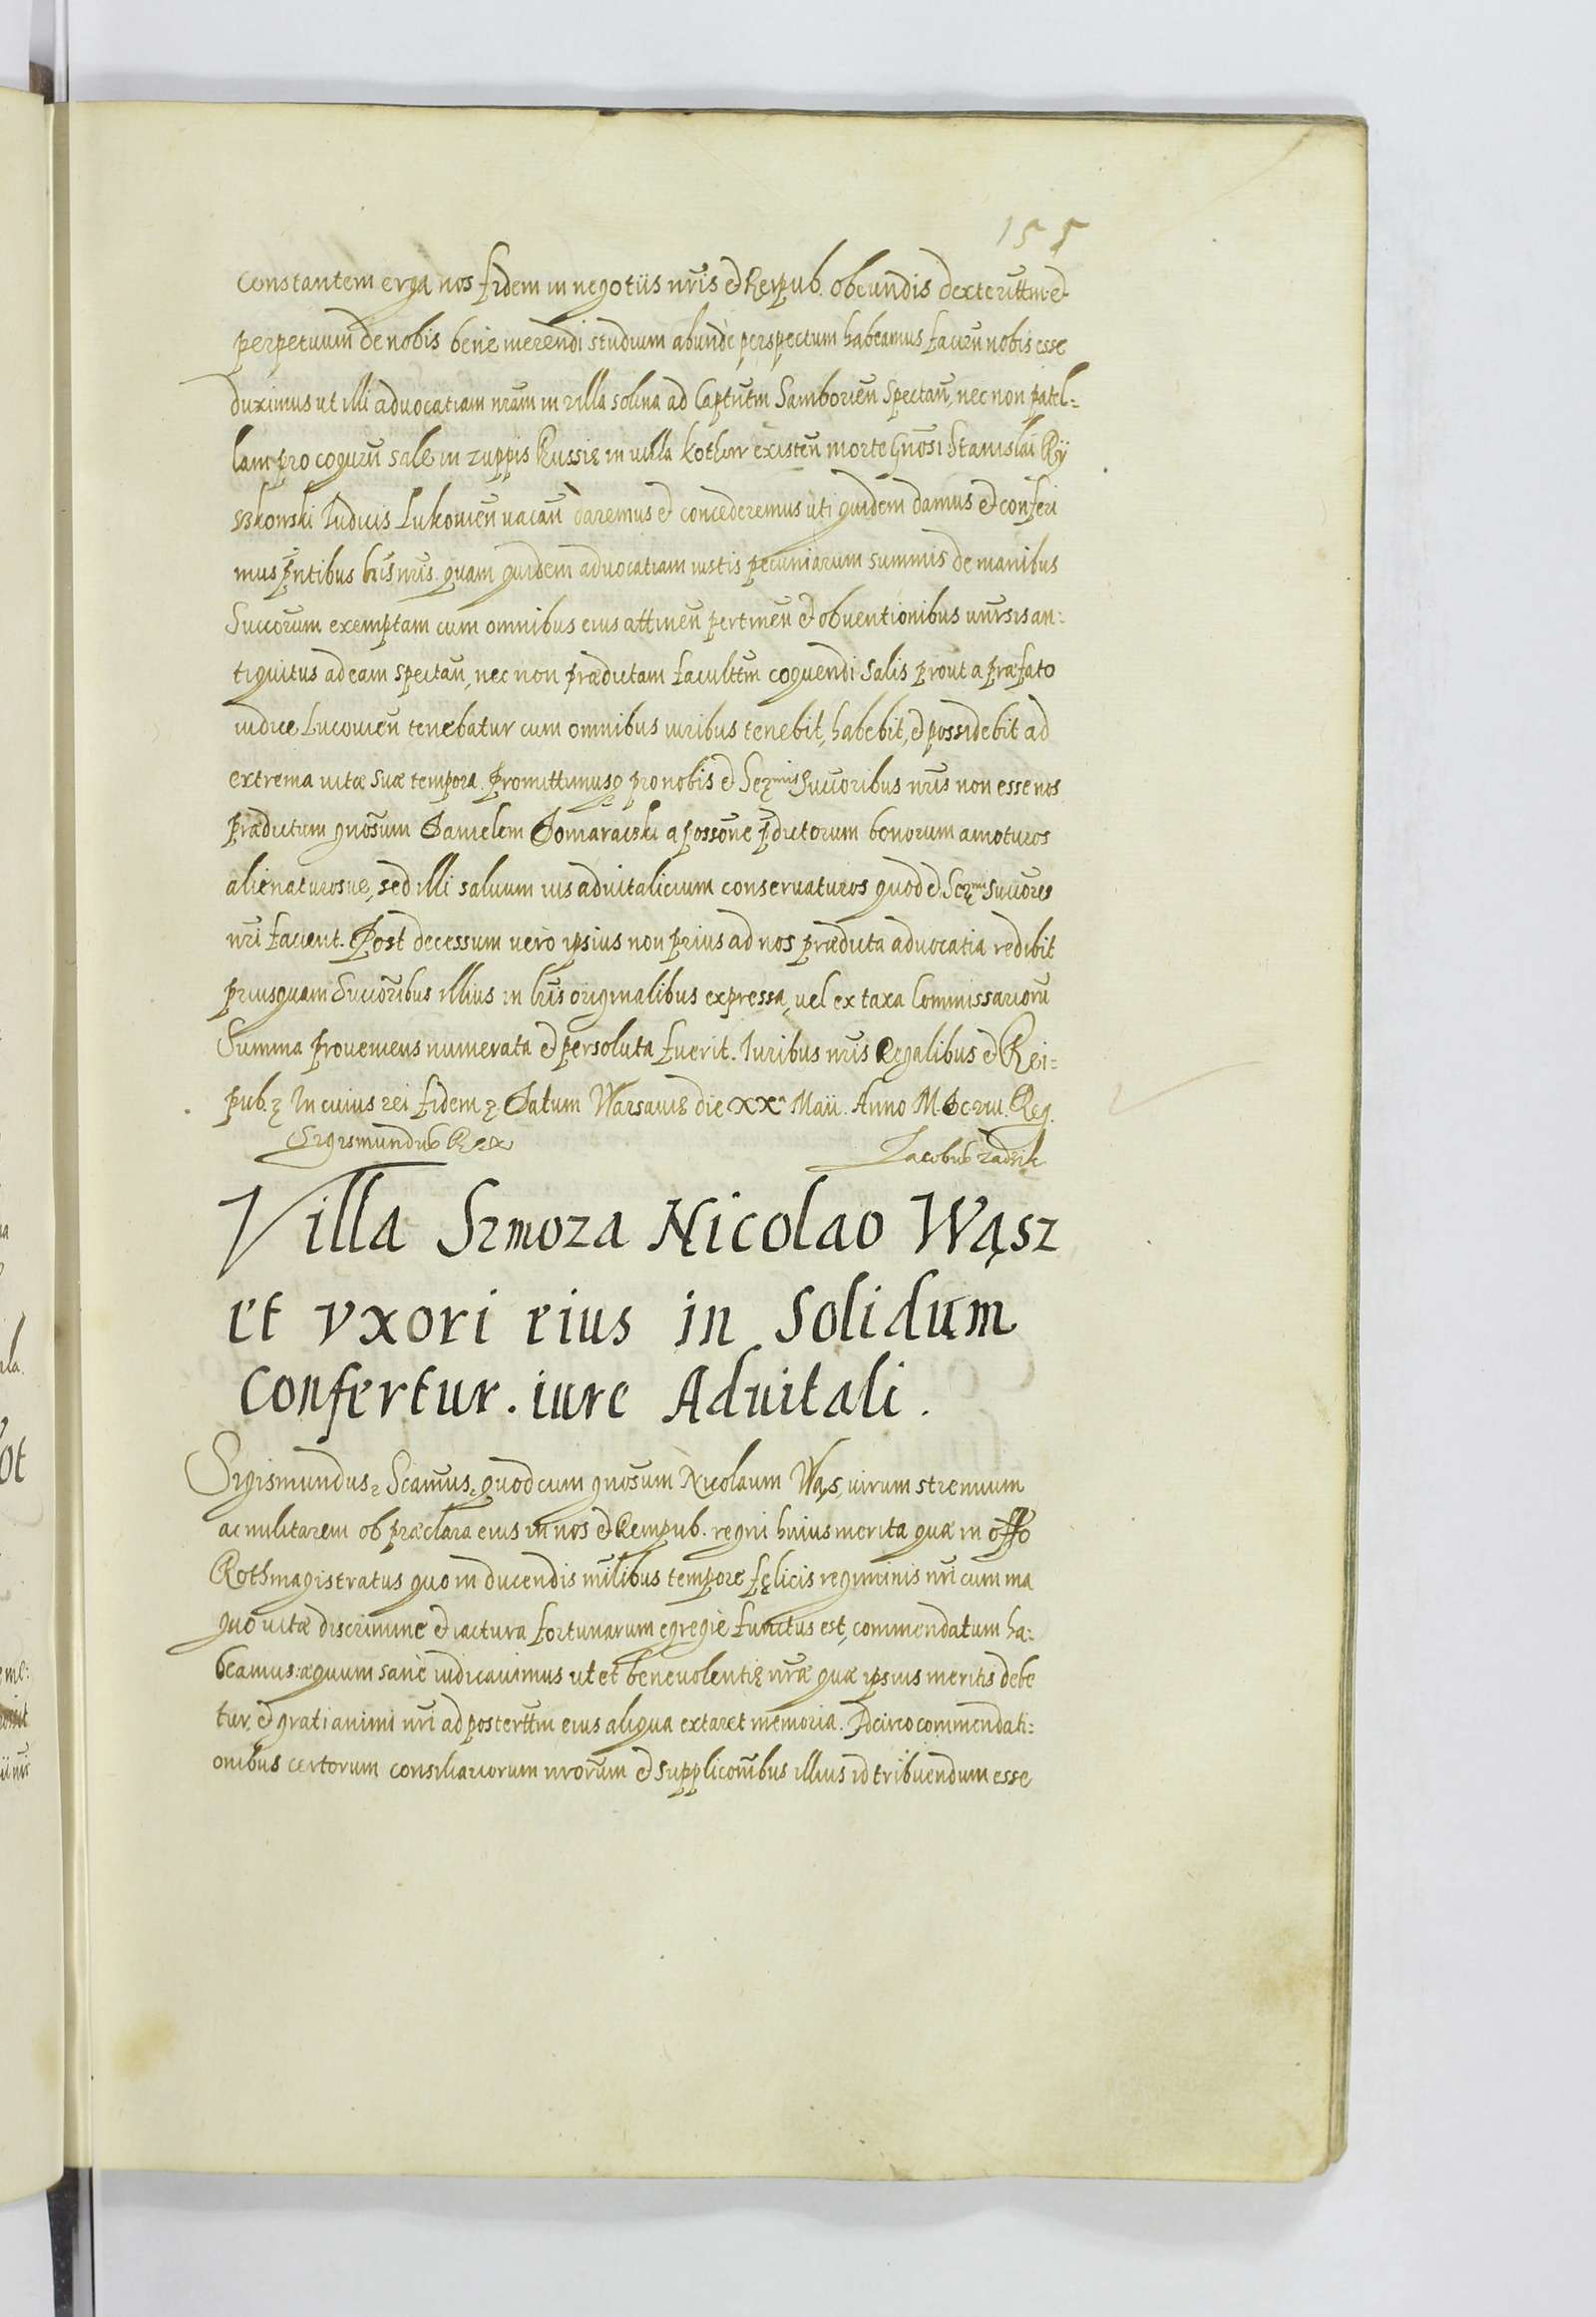 155
constantem erga nos fidem in negotiis nr̃is et Reipub. obeundis dexterittm̃ et
perpetuum de nobis bene merendi studium abunde perspectum habeamus faciun̄ nobis esse
duximus ut illi advocatiam nr̃am in villa Solina ad Captũtm Samborien̄ spectan̄, nec non patel=
lam pro coquen̄ sale in zuppis Russię in villa Kothow existen̄ morte Gn̄osi Stanislai Rÿ
Judicis Lukovien̄ vacan̄ daremus et concederemus uti quidem damus et conferi
mus p̄ntibus lr̃is nr̃is. quam quidem advocatiam iustis pecuniarum summis de manibus
Succorũm exemptam cum omnibus eius attinen̄ pertinen̄ et obventionibus univr̃sis an:
tiquitus ad eam spectan̄, nec non prædictam facultt̃m coquendi salis prout a præfato
iudice Lucovien̄ tenebatur cum omnibus iuribus tenebit, habebit, et possidebit ad
extrema vitæ suæ tempora. Promittimusq pro nobis et Serm̃is Succoribus nr̃is non esse nos
prædictum gn̄osum Danielem Domaraiski a possōne p̄dictorum bonorum amoturos
alienaturosve, sed illi salvum ius advitalicium conservaturos quod et Serm̃i Succores
nr̃i facient. Post decessum vero ipsius non prius ad nos prædicta advocatia redibit
priusquam Succorĩbus illius in lr̃is originalibus expressa, vel ex taxa Commissariorũ
Summa proveniens numerata et persoluta fuerit. Iuribus nr̃is Regalibus et Rei=
pub. ꝛ In cuius rei fidem ꝛ Datum Warsavię die XX.ͣ Maii. Anno M.DC Reg.
Sigismundus Rex Jacobus Zadzik
Villa Szmoza Nicolao Wąsz
et vxori eius in solidum
confertur. iure Advitali.
Sigismundus ꝛ Scimũs, quod cum gn̄osum Nicolaum Wąs, virum strenuum
ac militarem ob præclara eius in nos et Rempub. regni huius merita quæ in offo
Rothmagistratus quo in ducendis militibus tempore fęlicis regiminis nr̃i cum ma
gno vitæ discrimine et iactura fortunarum egregie functus est, commendatum ha:
beamus: æquum sane iudicavimus ut et benevolentię nr̃æ quæ ipsius meritis debe
tur, et grati animi nr̃i ad posterittm̃ eius aliqua extaret memoria. Idcirco commendati:
onibus certorum consiliariorum nrorũm et suppliconĩbus illius id tribuendum esse